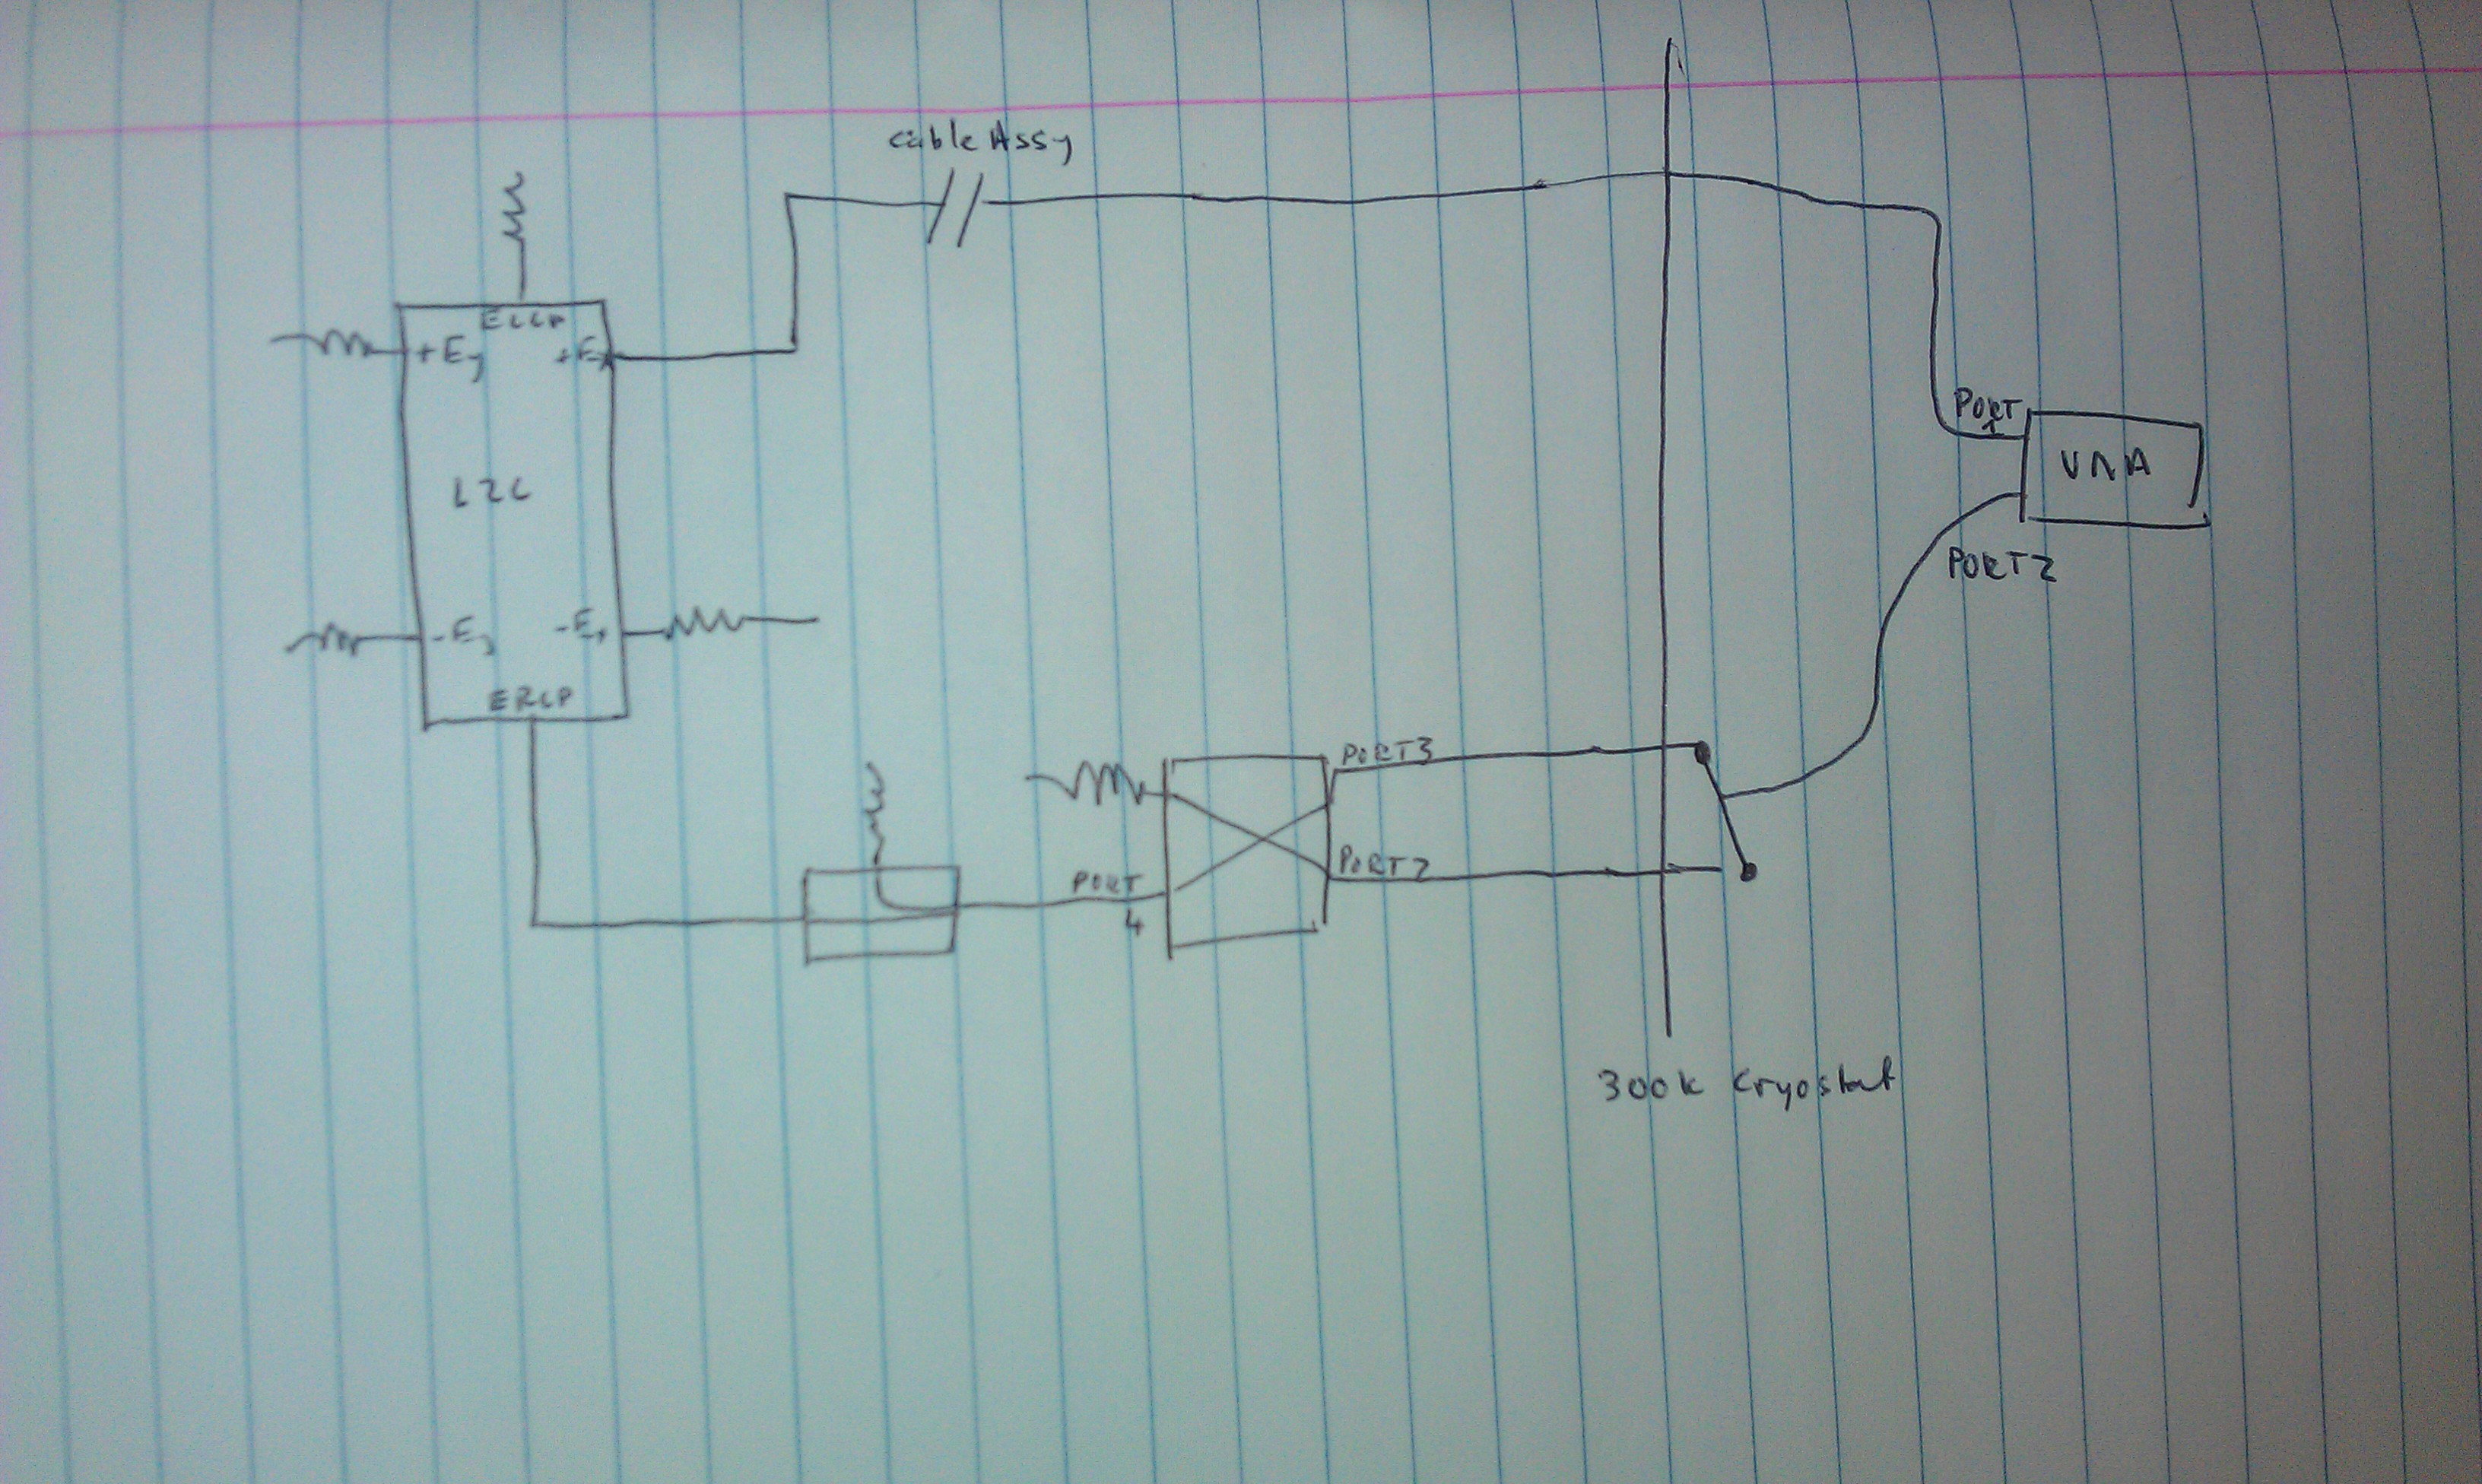 cable Assy
ELCP
+Ey
+Ex
L2C
-Ey
-Ex
ERCP
PORT
1
VNA
PORT2
PORT3
PORT2
PORT
4
300K Cryostat